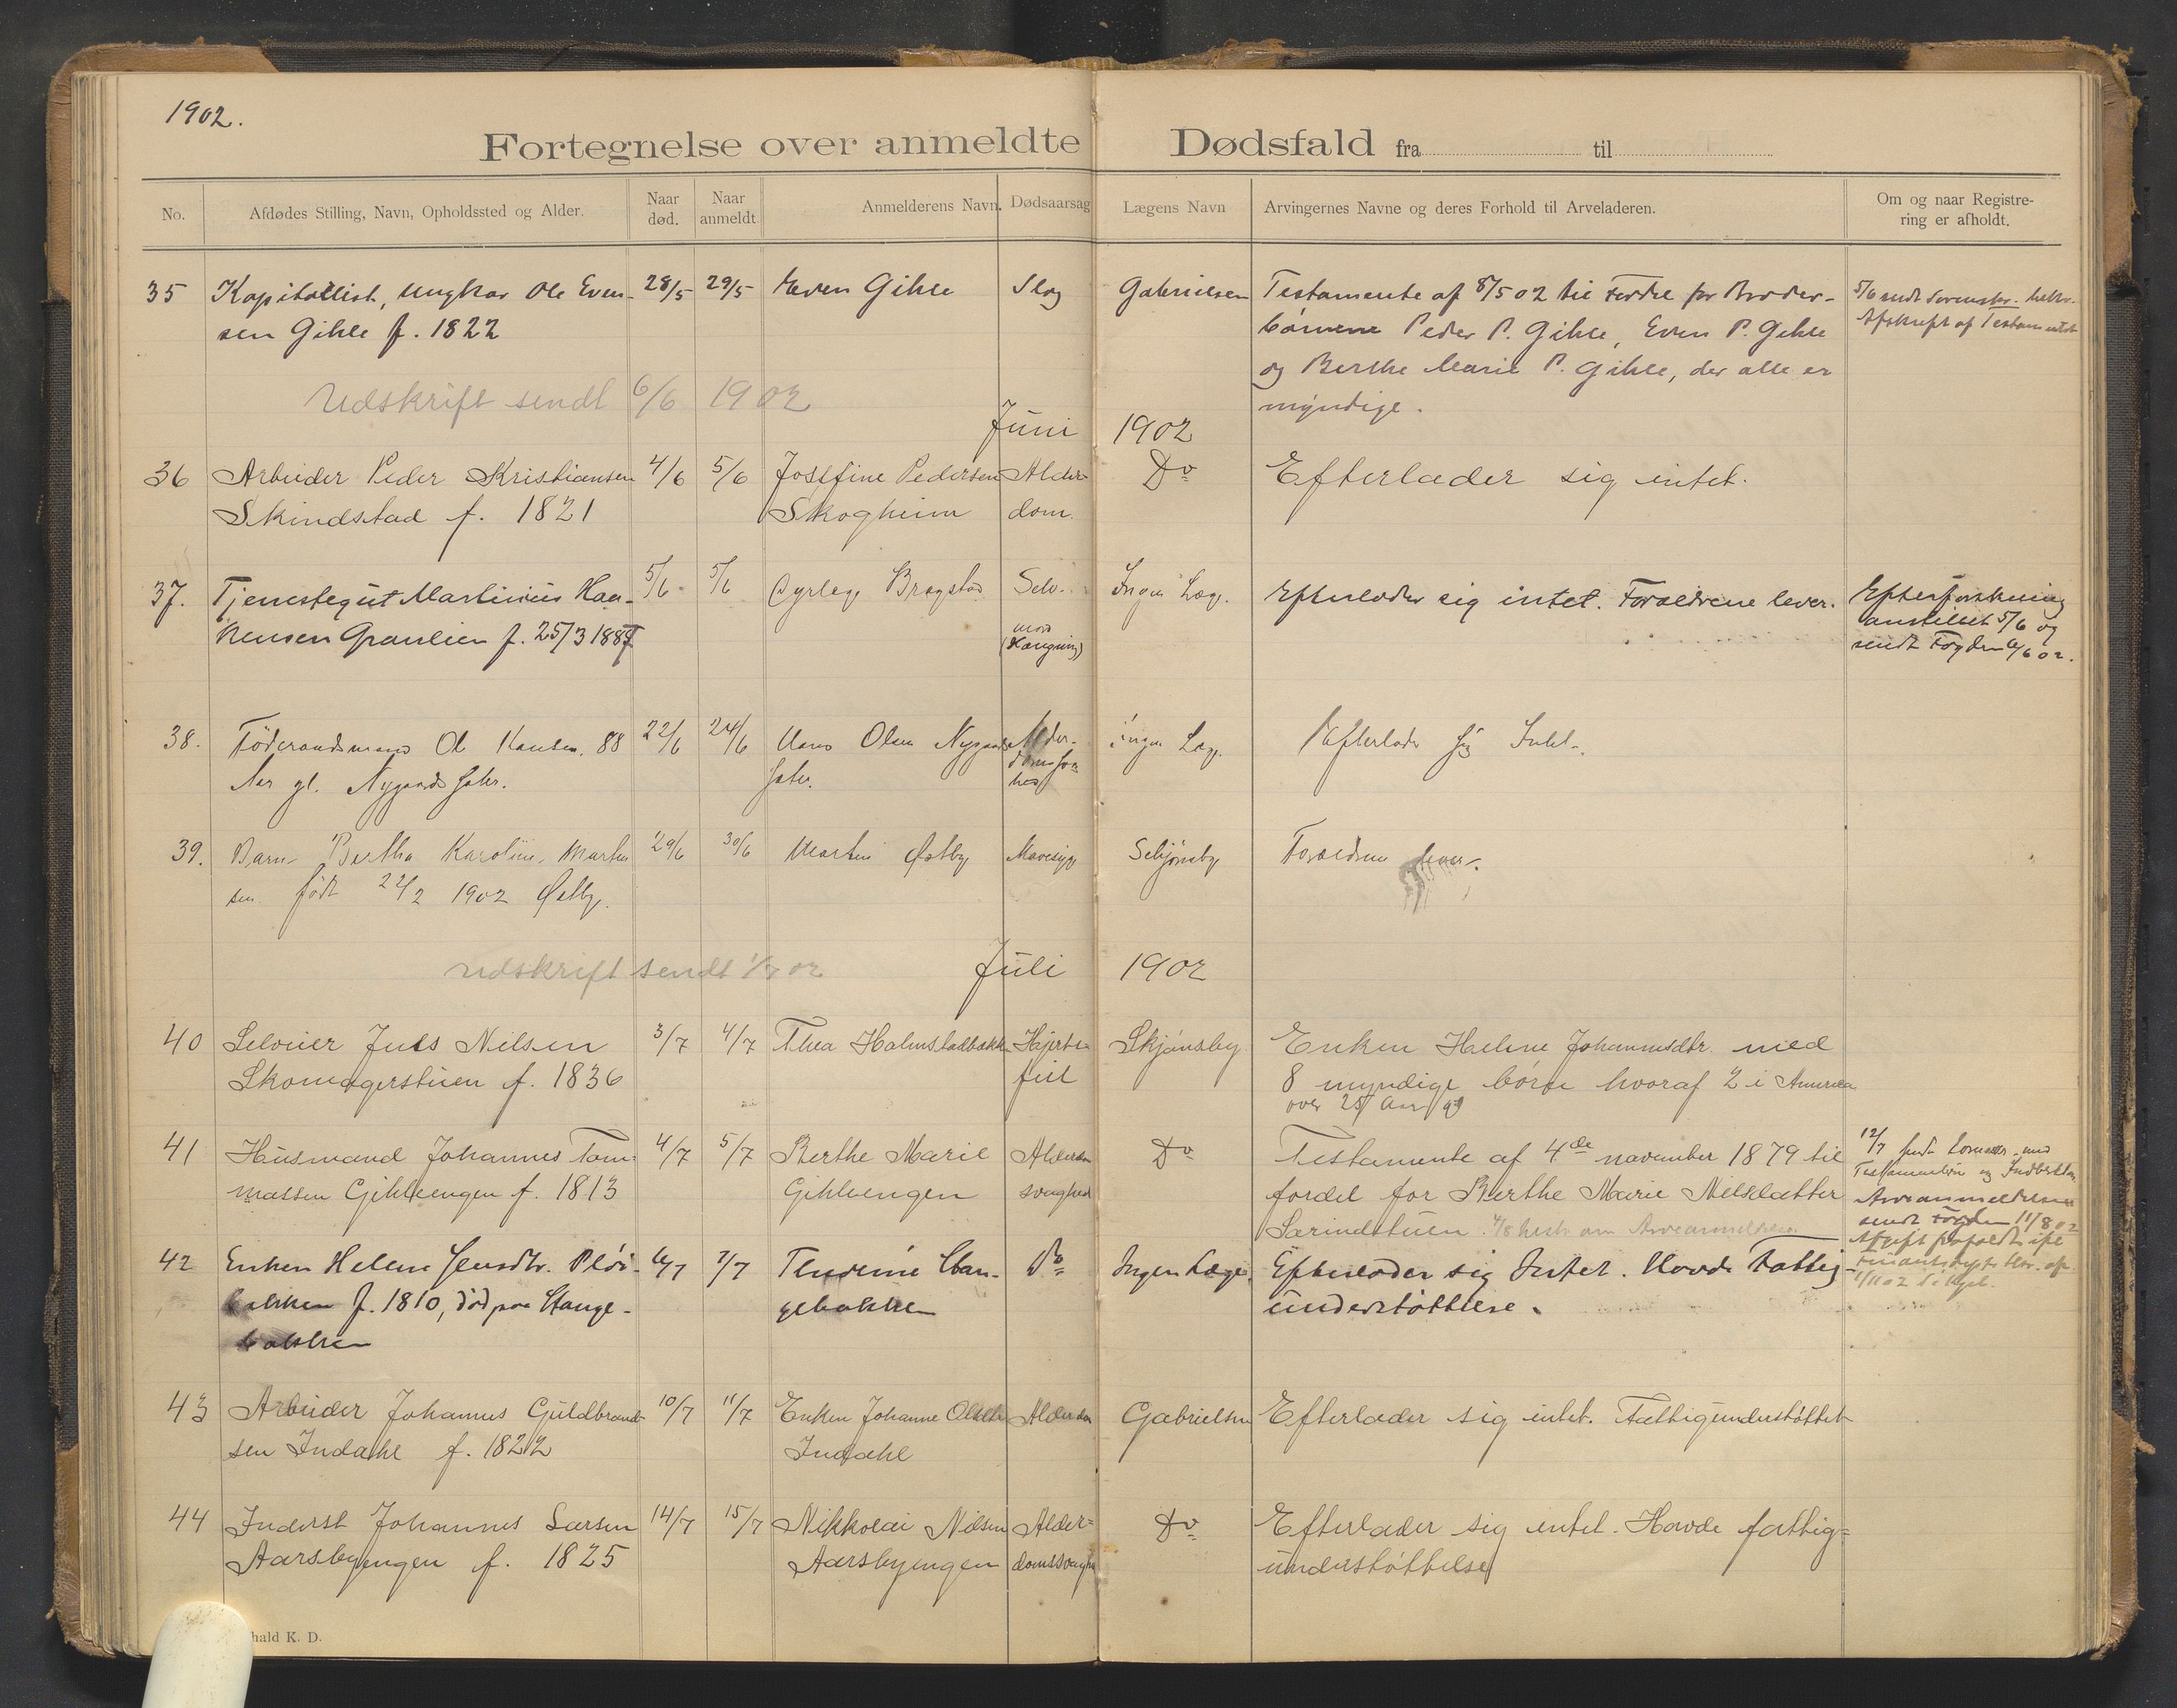 1902.
Fortegnelse over anmeldte Dødsfald fra til
No. Afdødes Stilling, Navn, Opholdssted og Alder. Naar død. Naar anmeldt. Anmelderens Navn. Dødsaarsag Lægens Navn Arvingernes Navne og deres Forhold til Arveladeren. Om og naar Registrering er afholdt.
35 Kapitallist, Ungkar Ole Even- 28/5 29/5 Even Gihle Slag Gabrielsen Testamente af 8/5 02 til Fordel for Broder-
sen Gihle f. 1822 børnene Peder P. Gihle, Even P. Gihle
og Berthe Marie P. Gihle, der alle er
myndige.
5/6 sendt Sorenskr. bekr.
Afskrift af Testamentet
Udskrift sendt 6/6 1902
Juni 1902
36 Arbeider Peder Kristiansen 4/6 5/6 Josefine Pedersen Alder- Do Efterlader sig intet.
Skindstad f. 1821 Skogheim dom.
37. Tjenestegut Martinius Haa- 5/6 5/6 Bragstad Selv- Ingen Læge. Efterlader sig intet. Forældrene lever.
kensen Granlien f. 25/3 188 mord
(Hængning)
Efterforskning
anstillet 5/6 og
sendt Fogden 6/6 02.
38. Føderaadsmand Ole Hansen. 88 22/6 24/6 Hans Olsen Nygaard Alder- ingen Læge. Efterlader sig Intet.
Aar gl. Nygaards
39. Barn Bertha Karoline Martin 29/6 30/6 Martin Østby Mavesyge Schjønsby Forældrene lever.
sen født 22/2 1902 Østby.
Udskrift sendt 1/7 02
Juli 1902
40 Selveier Juls Nilsen 3/7 4/7 Thea Holmstadbakk Hjerte Skjønsby Enken Helene Johannesdtr. med
Skomagerstuen f. 1836 feil 8 myndige børn hvoraf 2 i Amerika
over 25 Aar
41 Husmand Johannes Tom- 4/7 5/7 Berthe Marie Alderdom Do Testamente af 4de november 1879 til
massen Gihleengen f. 1813 Gihleengen svaghed fordel for Berthe Marie Nilsdatter
Sarindstuen. 4/8 om Arveanmeldelse
12/7 sendt med
Testamentet og
Arveanmeldelsen
sendt Fogden 11/8 02
42 Enken Helene Jensdtr. Pløi- 6/7 7/7 Stan- Do Ingen Læge. Efterlader sig Intet. Havde Fattig-
bakken f. 1810, død paa Stange- gebakken understøttelse.
bakken
43 Arbeider Johannes Guldbrand- 10/7 11/7 Enken Johanne Olsdtr Alderdom Gabrielsen Efterlader sig intet. Fattigunderstøttet
sen Indahl f. 1822 Indahl
44 Inderst Johannes Larsen 14/7 15/7 Nikkolai Nilsen Alder= Do Efterlader sig intet. Havde fattig=
Aarsbyengen f. 1825 Aarsbyengen domssvaghed understøttelse
hald K. D.